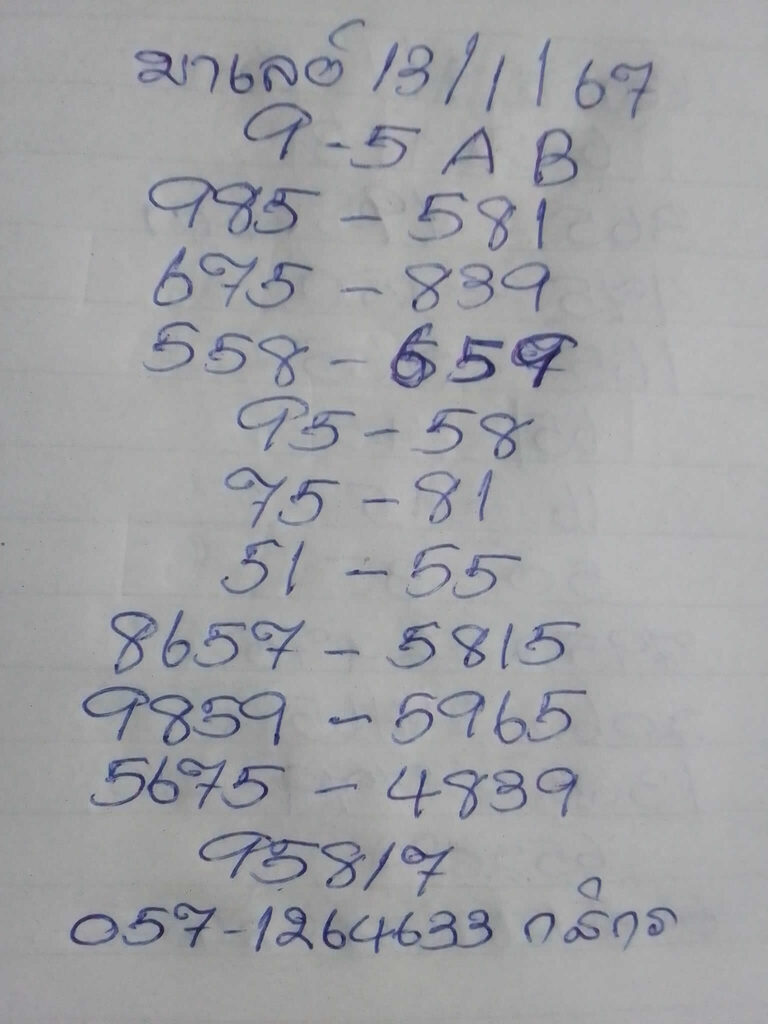 มาเลย์ 13/1/67
9-5 A B
985 - 581
675 - 839
558 - 659
95 - 58
75 - 81
51 - 55
8657 - 5815
9859 - 5965
5675 - 4839
95817
057-1264633 กสิกร